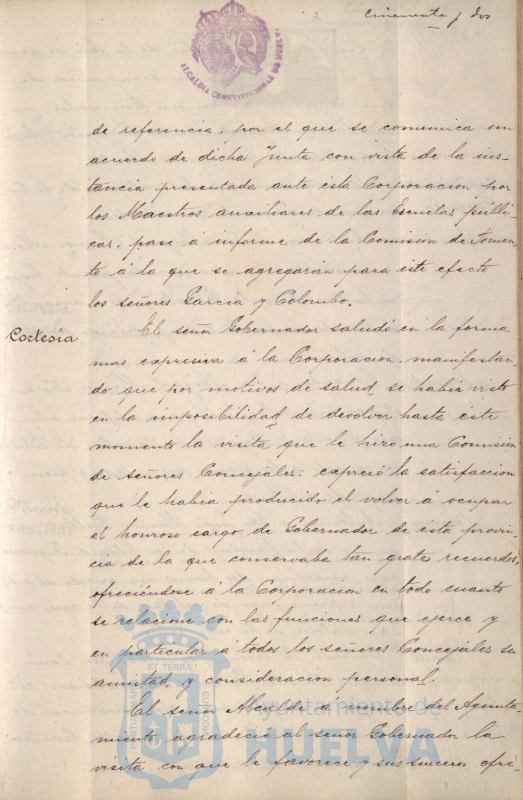 Cincuenta y dos
ALCALDIA CONSTITUCIONAL DE HUELVA
de referencia, por el que se comunica un
acuerdo de dicha Junta con vista de la ins-
tancia presentada ante esta Corporacion por
los Maestros auxiliares de las Escuelas públi-
cas, pase á informe de la Comision de Fomen-
to á la que se agregarán para este efecto
los señores Garcia y Colombo.
Cortesía
El señor Gobernador saludó en la forma
mas expresiva á la Corporacion, manifestan-
do que por motivos de salud se habia visto
en la imposibilidad de devolver hasta este
momento la visita que le hizo una Comision
de señores Concejales: expresó la satisfaccion
que le habia producido el volver á ocupar
el honroso cargo de Gobernador de esta provin-
cia de la que conservaba tan gratos recuerdos,
ofreciéndose á la Corporacion en todo cuanto
se relacione con las funciones que ejerce y
en particular á todos los señores Concejales su
amistad y consideracion personal.
El señor Alcalde á nombre del Ayunta-
miento agradeció al señor Gobernador la
visita con que le favorece y sus sinceros ofre-
Ayuntamiento de
HUELVA